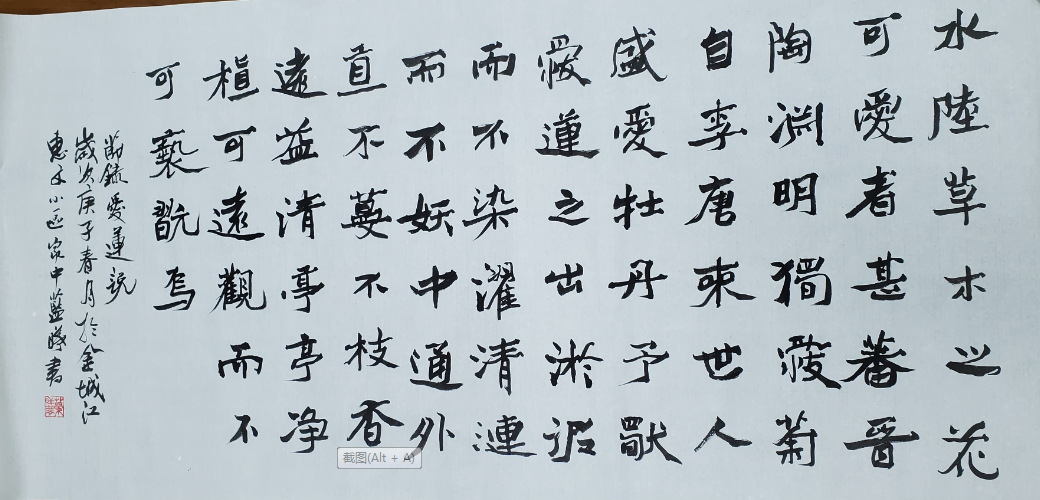 水陸草木之花
可愛者甚蕃晋
陶淵明獨愛菊
自李唐来世人
盛愛牡丹予獨
愛蓮之出淤泥
而不染濯清漣
而不妖中通外
直不蔓不枝香
遠益清亭亭净
植可遠觀而不
可褻翫焉
節錄愛蓮説
歲次庚子春月於金城江
惠小区家中藍書
截图(Alt + A)